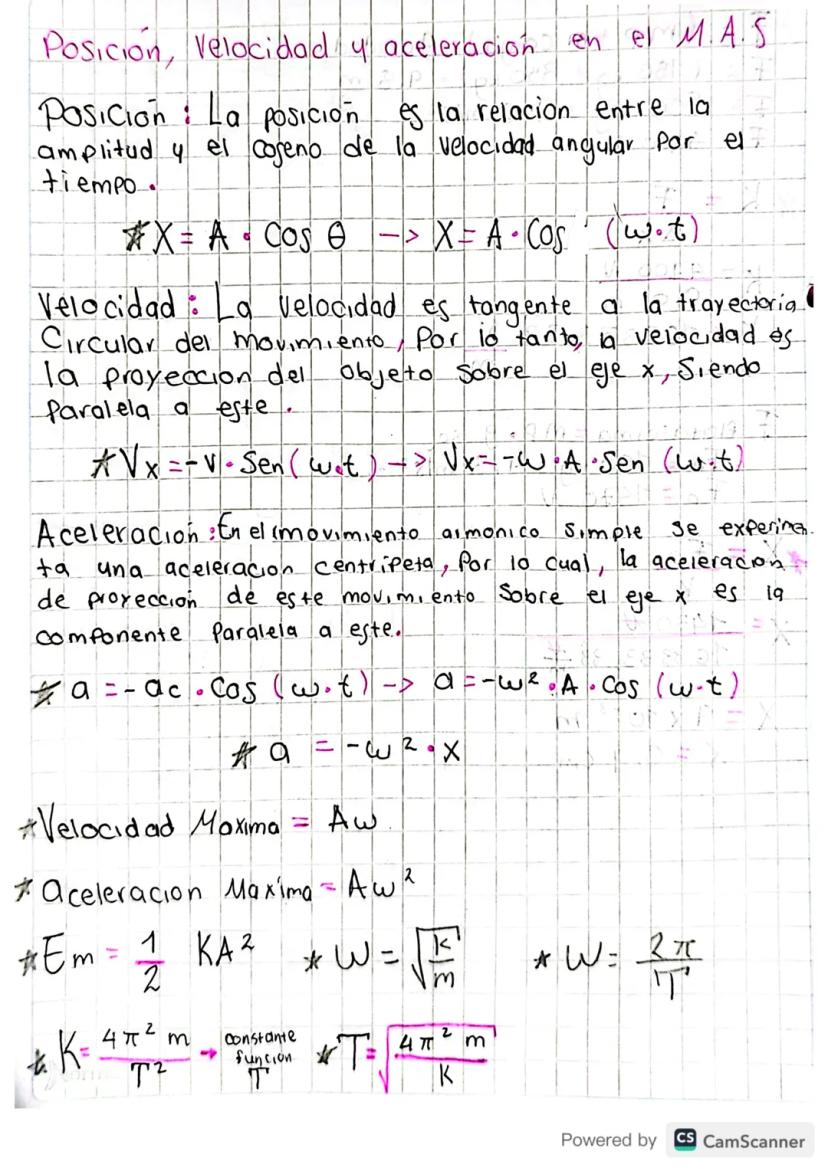 Posición, velocidad y aceleración en el M.A.S
Posición: La posición es la relacion entre la
amplitud y el coseno de la velocidad angular por el
tiempo.
* X = A · Cos θ --> X = A · Cos (w·t)
Velocidad: La velocidad es tangente a la trayectoria
Circular del movimiento, Por lo tanto, la velocidad es
la proyeccion del objeto sobre el eje x, Siendo
Paralela a este.
* Vx = -v · Sen (w·t) --> Vx = -w · A · Sen (w·t)
Aceleración: En el movimiento armonico simple se experimen-
ta una aceleracion centripeta, Por lo cual, la aceleracion
de proyección de este movimiento sobre el eje x es la
componente Paralela a este.
* a = -ac · Cos (w·t) --> a = -w² · A · Cos (w·t)
* a = -w² · x
* Velocidad Maxima = Aw
* aceleracion Maxima = Aw²
* Em = 1/2 KA² * W = √(K/m) * W = 2π/T
* K = 4π² m / T² → constante función T * T = √(4π² m / K)
Powered by CS CamScanner